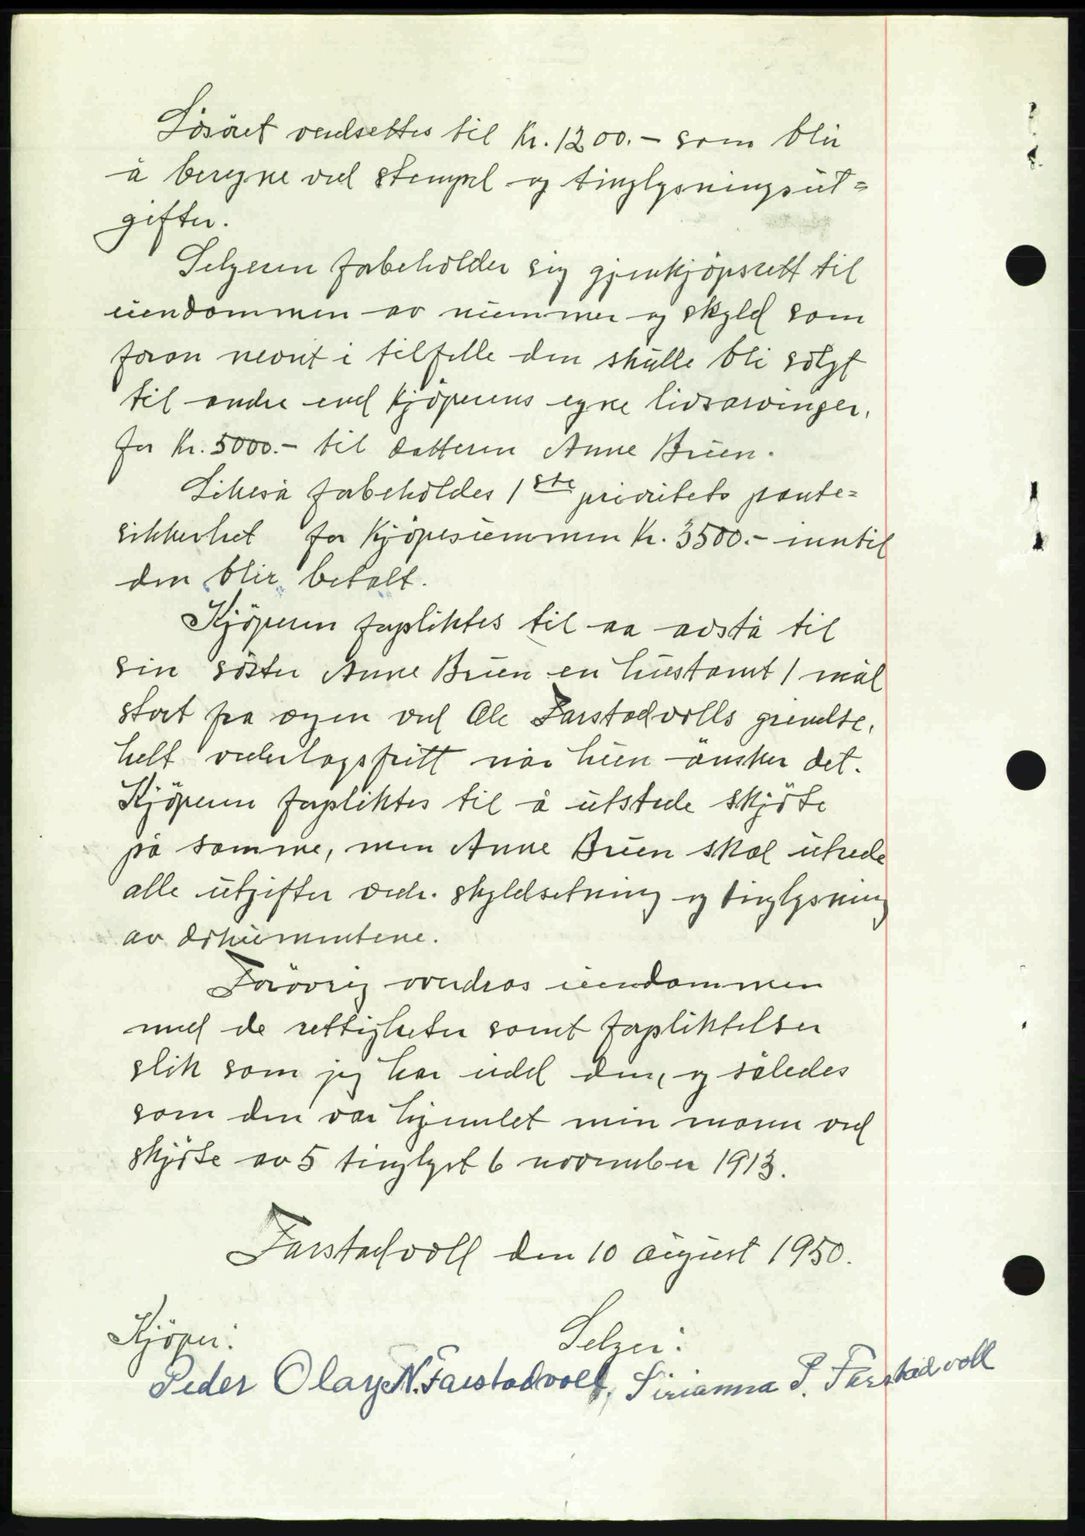 Lösöret verdsettes til Kr. 1200.- som blir
å beregne ved stempel og tinglysningsut=
gifter.
Selgeren forbeholder sig gjenkjöpsrett til
eiendommen av nummer og skyld som
foran nevnt i tilfelle den skulle bli solgt
til andre end kjöperens egne livsarvinger,
for Kr. 5000.- til datteren Anne Bruen.
Likeså forbeholdes 1ste prioritets pante=
sikkerhet for kjöpesummen Kr. 3500.- inntil
den blir betalt.
Kjöperen forpliktes til aa avstå til
sin söster Anne Bruen en hustomt 1 mål
stort fra øgen ved Ole Farstadvolls grendse,
helt vederlagsfritt når hun önsker det.
Kjöperen forpliktes til å utstede skjöte
på samme, men Anne Bruen skal utrede
alle utgifter vedr. skyldsetning og tinglysning
av dokumentene.
Forövrig overdras eiendommen
med de rettigheter samt forpliktelser
slik som jeg har eidd den, og således
som den var hjemlet min mann ved
skjöte av 5 tinglyst 6 november 1913.
Farstadvoll den 10 august 1950.
Kjöper: Selger:
Peder Olav N. Farstadvoll, Sirianna P. Farstadvoll